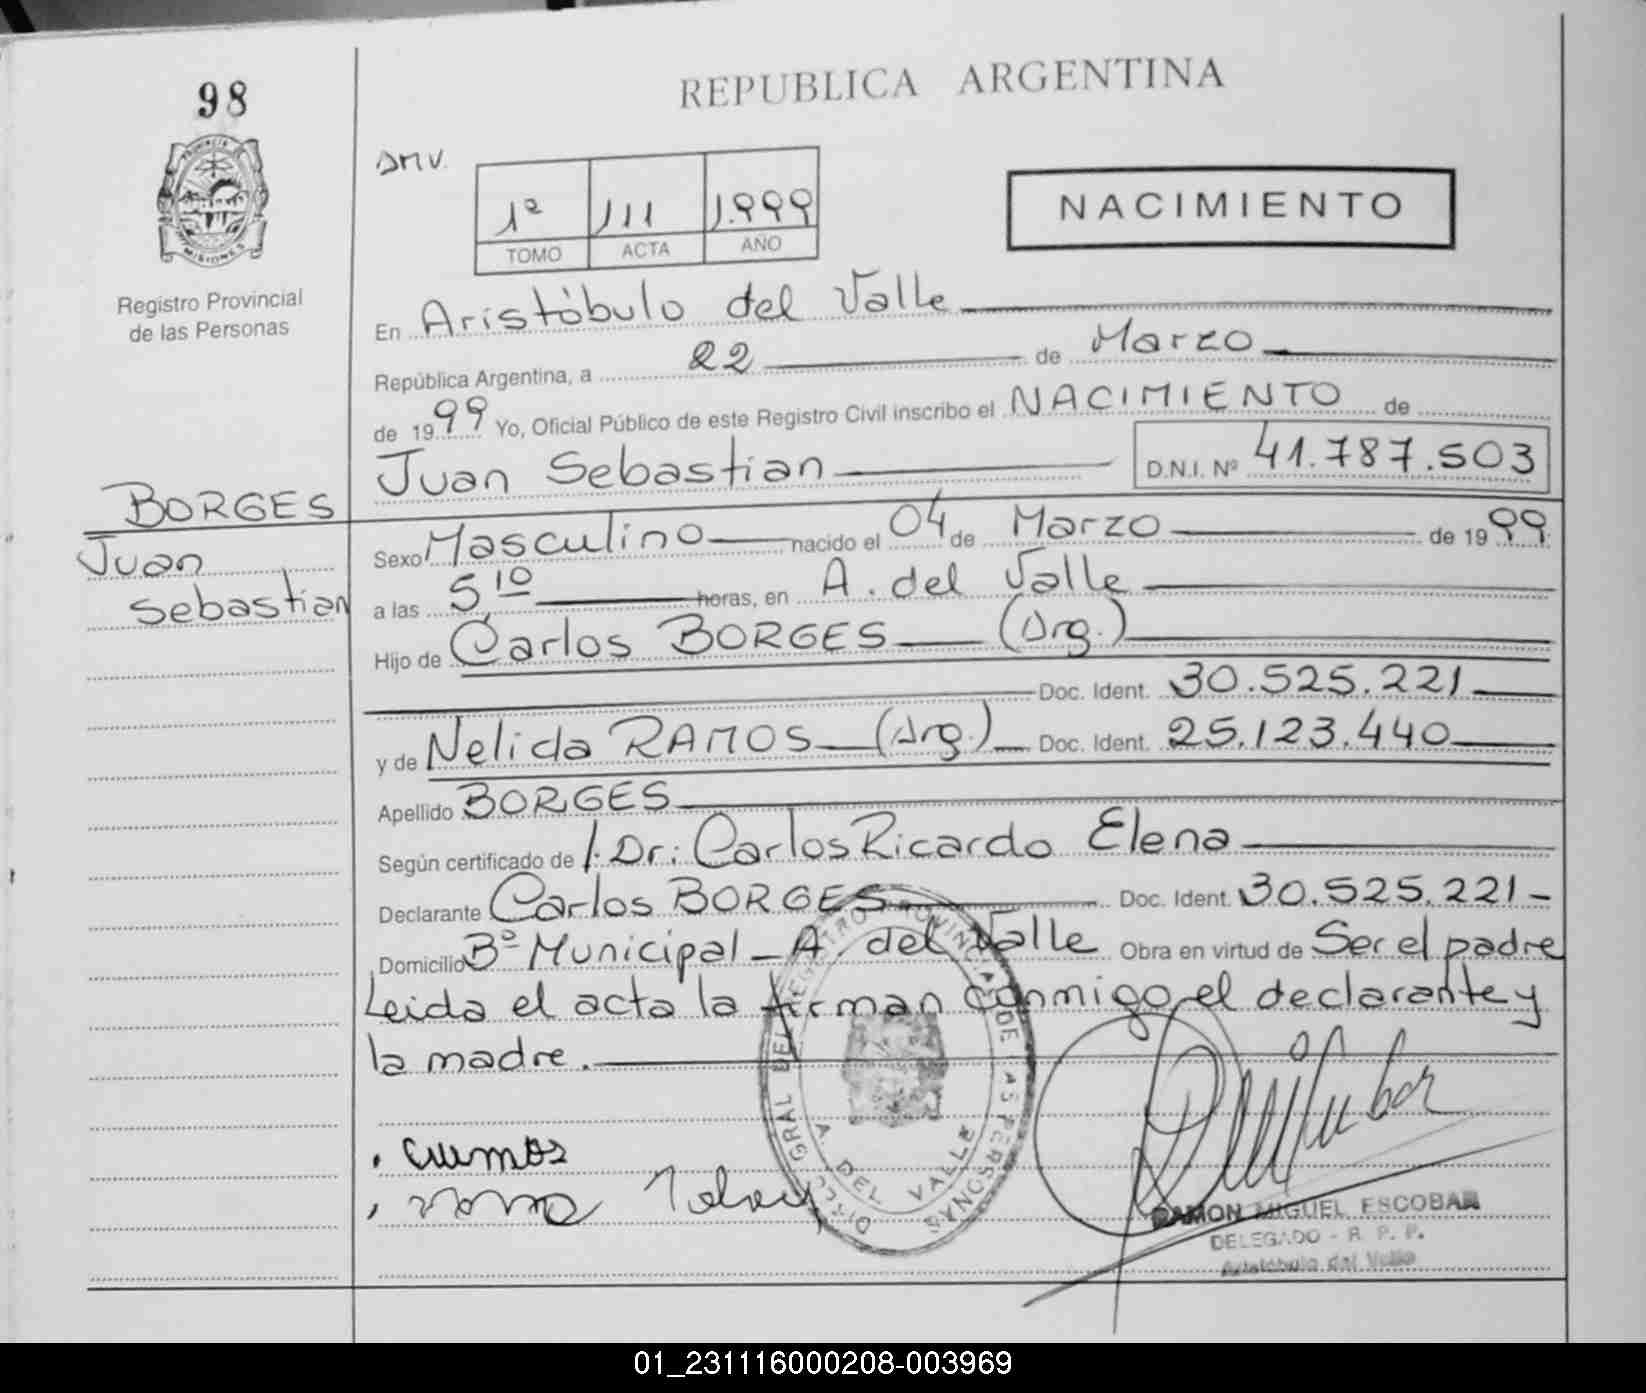 98
REPUBLICA ARGENTINA
PROVINCIA DE
MISIONES
Registro Provincial
de las Personas
DMV.
1º 111 1.999
TOMO ACTA AÑO
NACIMIENTO
En Aristóbulo del Valle
República Argentina, a 22 de Marzo
de 1999 Yo, Oficial Público de este Registro Civil inscribo el NACIMIENTO de
Juan Sebastian D.N.I. Nº 41.787.503
BORGES
Juan
Sebastian
Sexo Masculino nacido el 04 de Marzo de 1999
a las 5 10 horas, en A. del Valle
Hijo de Carlos BORGES (Arg.)
Doc. Ident. 30.525.221
y de Nelida RAMOS (Arg.) Doc. Ident. 25.123.440
Apellido BORGES
Según certificado de /. Dr: Carlos Ricardo Elena
Declarante Carlos BORGES Doc. Ident. 30.525.221
Domicilio Bº Municipal - A. del Valle Obra en virtud de Ser el padre
Leida el acta la firman conmigo el declarante y
la madre.
DIREC. GRAL DEL REGISTRO PROVINCIAL DE LAS PERSONAS
A. DEL VALLE
RAMON MIGUEL ESCOBAR
DELEGADO - R. P. P.
Aristóbulo del Valle
01_231116000208-003969